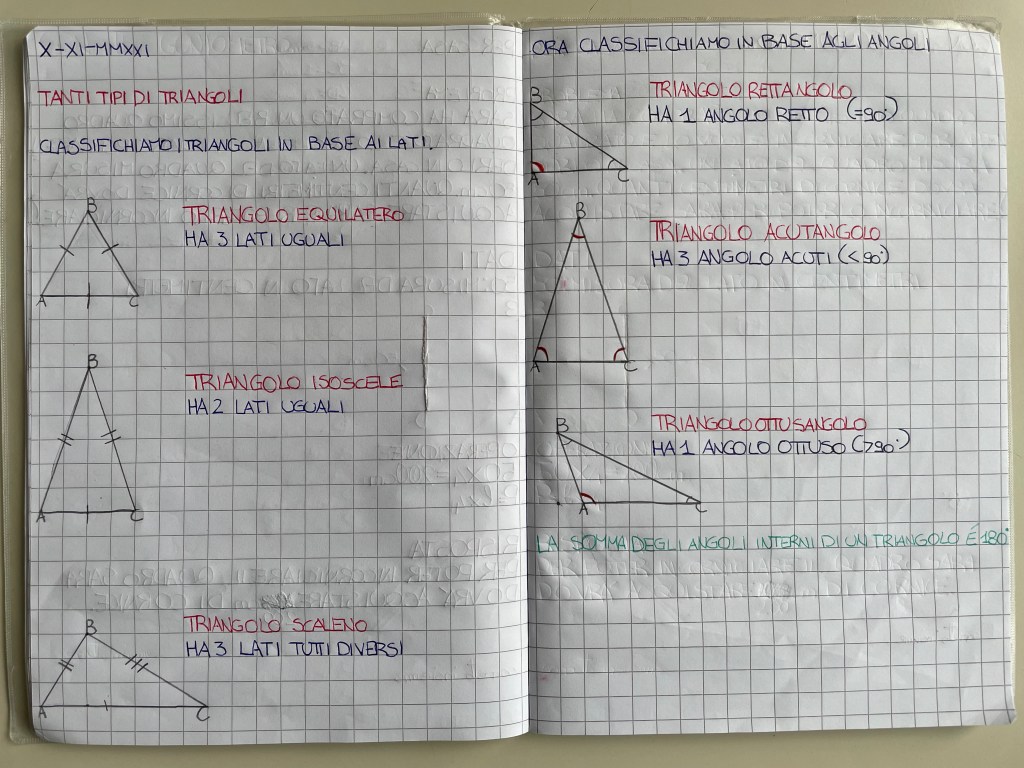 X-XI-MMXXI
TANTI TIPI DI TRIANGOLI
CLASSIFICHIAMO I TRIANGOLI IN BASE AI LATI.
B
TRIANGOLO EQUILATERO
HA 3 LATI UGUALI
A C
B
TRIANGOLO ISOSCELE
HA 2 LATI UGUALI
A C
B
TRIANGOLO SCALENO
HA 3 LATI TUTTI DIVERSI
A C
ORA CLASSIFICHIAMO IN BASE AGLI ANGOLI
B
TRIANGOLO RETTANGOLO
HA 1 ANGOLO RETTO (=90°)
A C
B
TRIANGOLO ACUTANGOLO
HA 3 ANGOLO ACUTI (<90°)
A C
B
TRIANGOLO OTTUSANGOLO
HA 1 ANGOLO OTTUSO (>90°)
A C
LA SOMMA DEGLI ANGOLI INTERNI DI UN TRIANGOLO É 180°